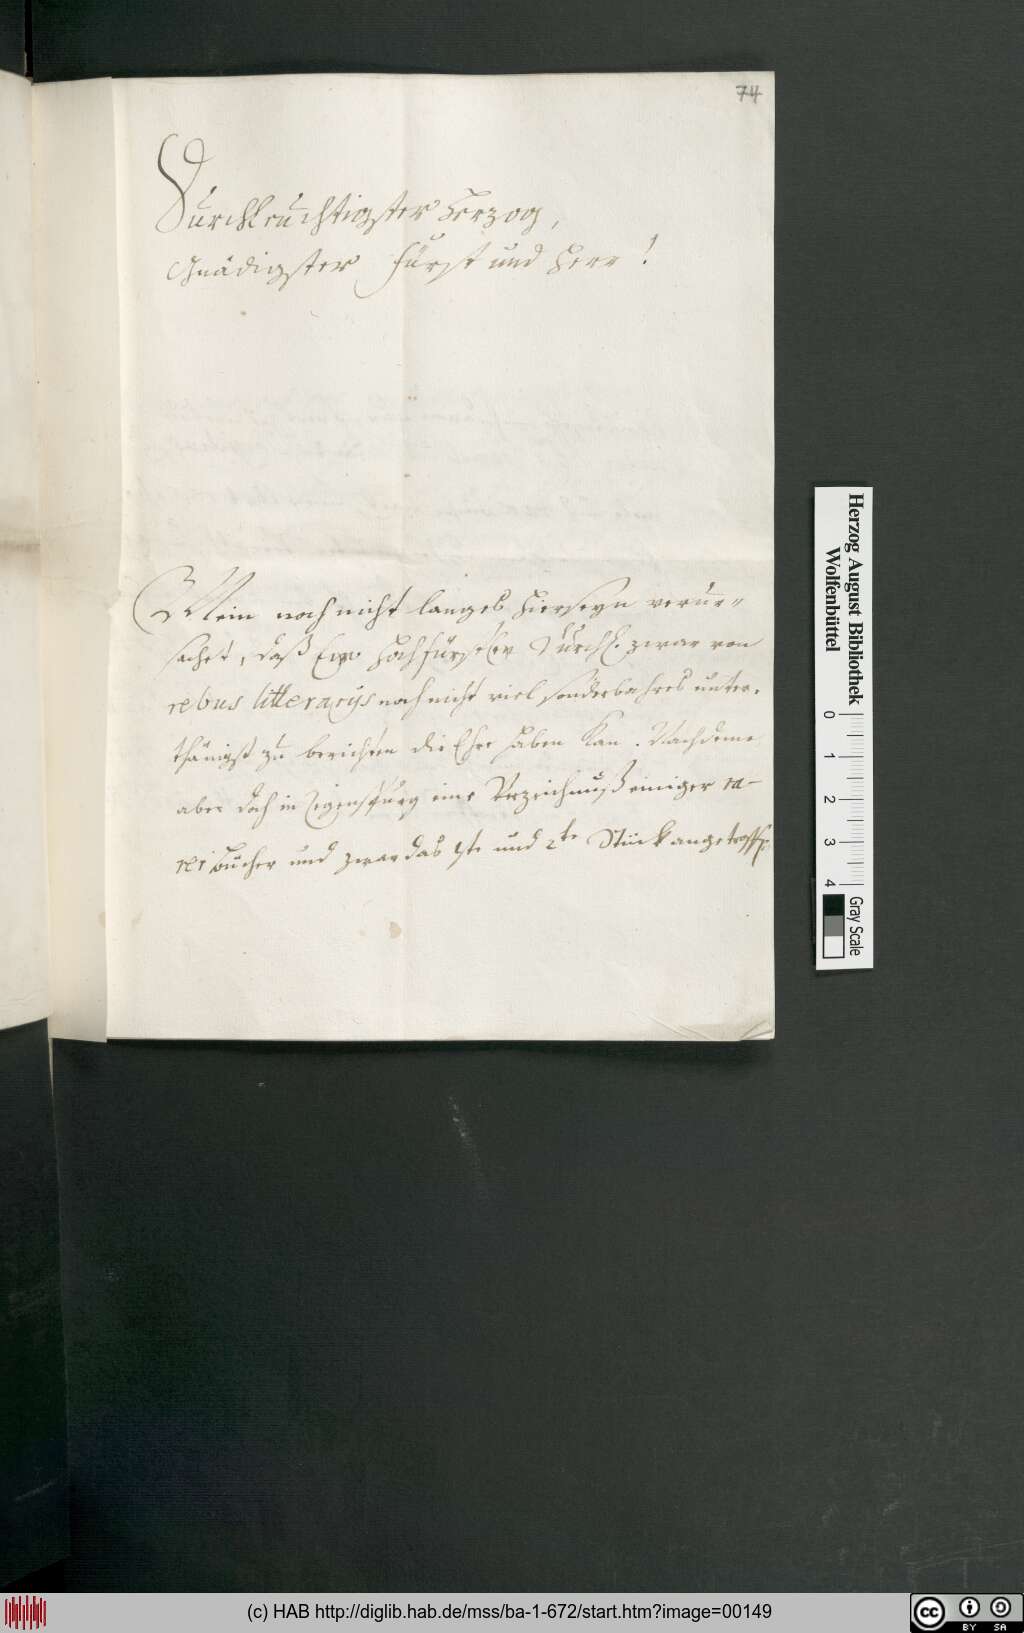 74
Durchleuchtigster Herzog,
Gnädigster Fürst und Herr!
Mein noch nicht langes Hierseyn verur-
sachet, daß Ew. Hochfürstler Durchl. zwar von
rebus litterarijs noch nicht viel sonderbahres unter-
thänigst zu berichten die Ehre haben kan. Nachdeme
aber doch in Regenspurg eine Verzeichnuß einiger ra-
rer Bücher und zwar das 1ste und 2te Stück angetroffen
Herzog August Bibliothek
Wolfenbüttel
0 1 2 3 4
Gray Scale
(c) HAB http://diglib.hab.de/mss/ba-1-672/start.htm?image=00149
cc BY SA